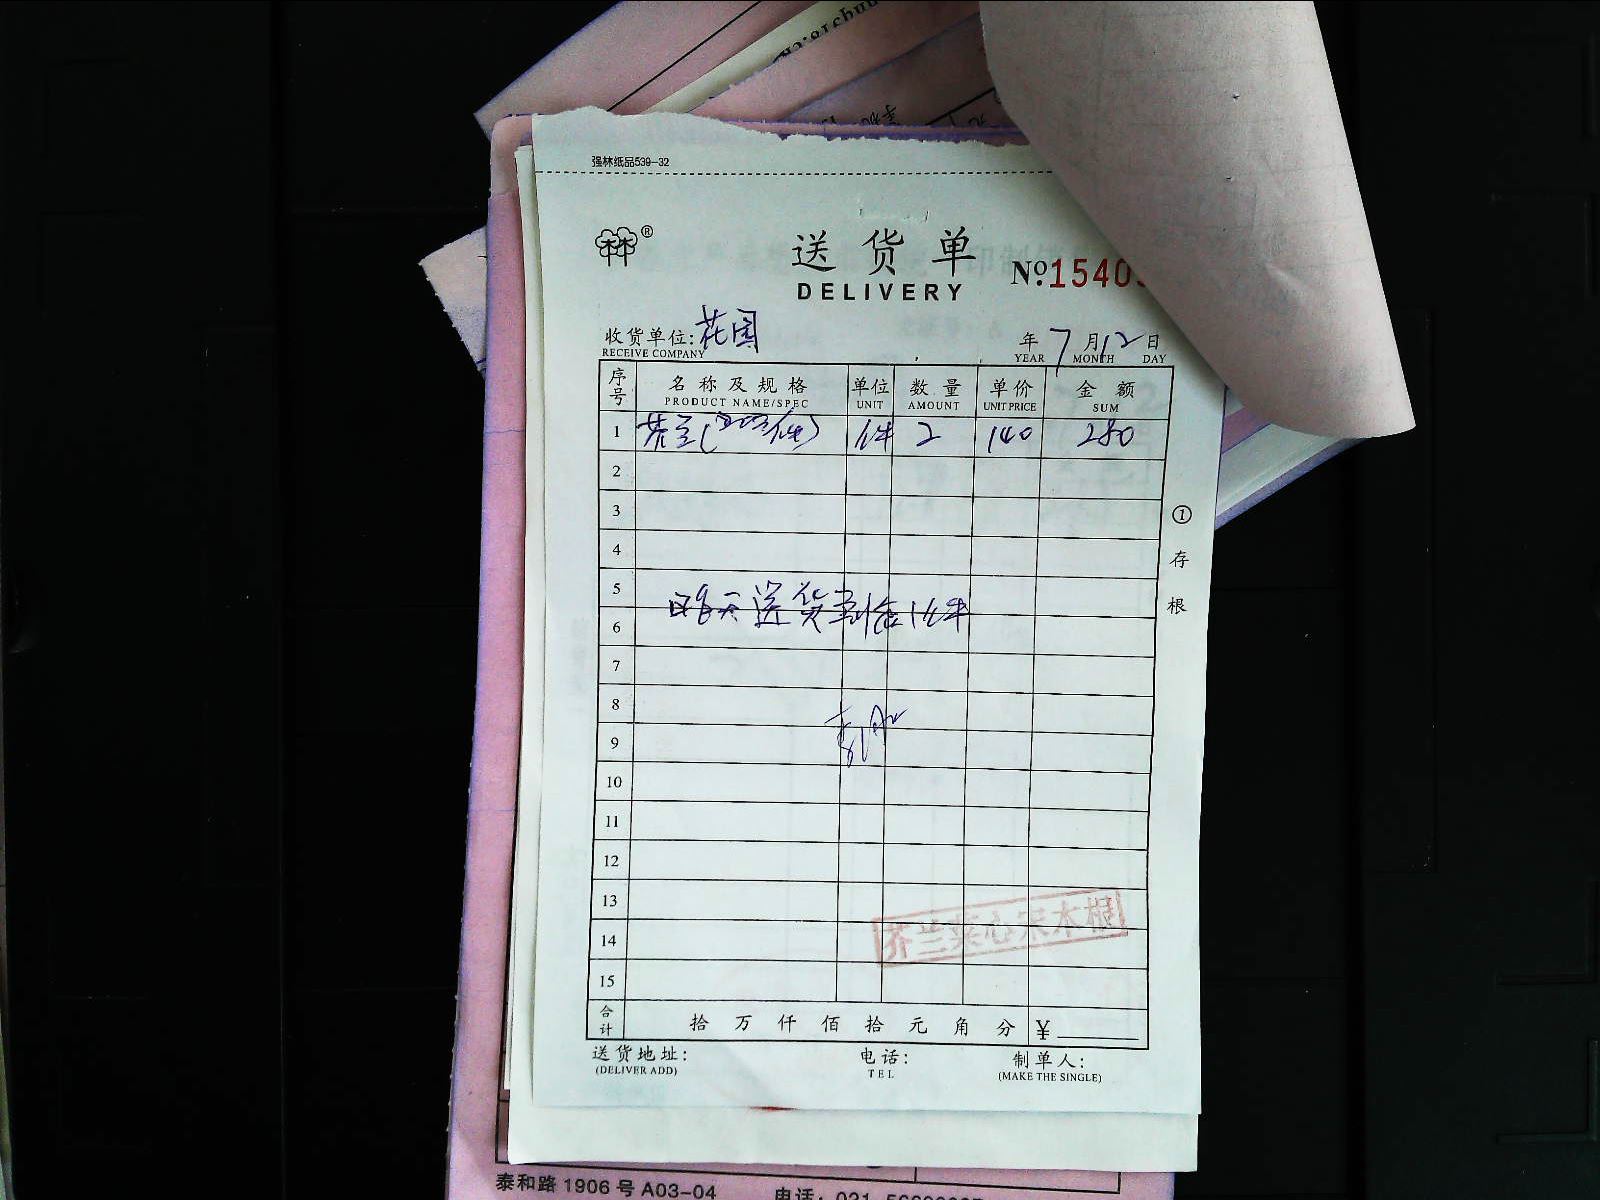 强林纸品539-32
林林®
送货单
№.15403
DELIVERY
收货单位:花园 年7月12日
RECEIVE COMPANY YEAR MONTH DAY
序号 名称及规格 单位 数量 单价 金额
PRODUCT NAME/SPEC UNIT AMOUNT UNIT PRICE SUM
1 芥兰( 件 2 140 280
2
3
4
5
昨天送货剩余1件
6
7
8
9
10
11
12
13
芥兰菜心 木根
14
15
合计 拾万仟佰拾元角分 ¥
送货地址: 电话: 制单人:
(DELIVER ADD) TEL (MAKE THE SINGLE)
①存根
泰和路1906号A03-04 电话: 021-